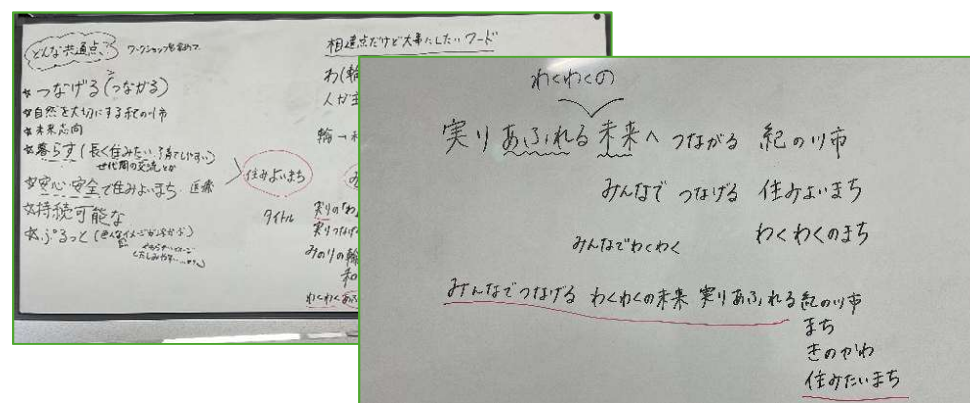 どんな共通点? ワークショップを含めて
☆つなげる(つながる)
☆自然を大切にする紀の川市
☆未来志向
☆暮らす(長く住みたい、子育てしやすい)
世代間の交流とか
☆安心安全で住みよいまち 医療
☆持続可能な
☆ぷるっと
住みよいまち
相違点だけど大事にしたいワード
わ(輪
人が主
輪→
タイトル
実りの「わ
実りつなげ
みのりの輪
和
わくわくあふ
わくわくの
実りあふれる未来へつながる 紀の川市
みんなでつなげる 住みよいまち
みんなでわくわく わくわくのまち
みんなでつなげる わくわくの未来 実りあふれる紀の川市
まち
きのかわ
住みたいまち